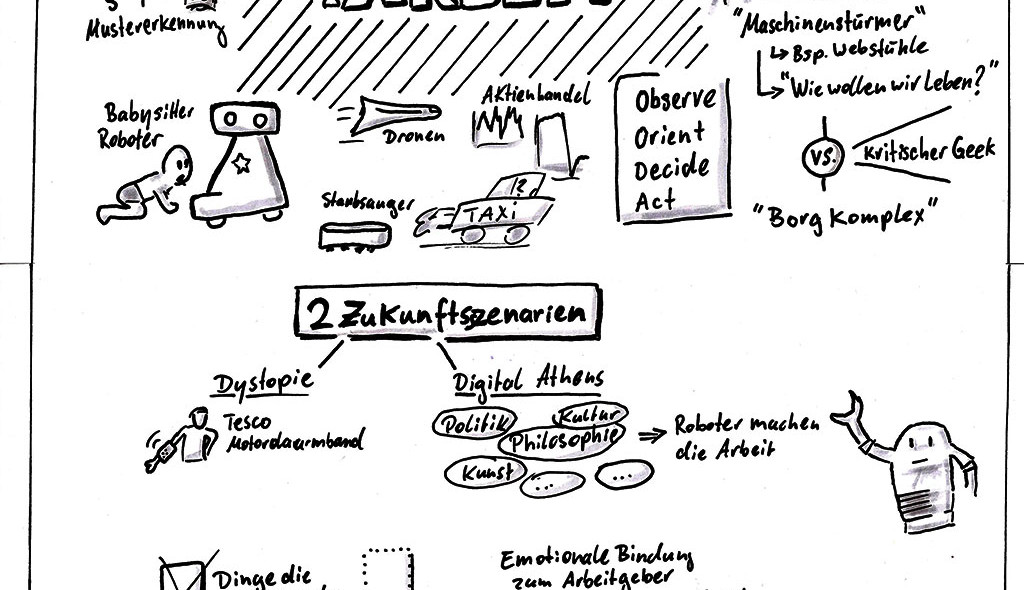 Mustererkennung
"Maschinenstürmer"
Bsp. Webstühle
"Wie wollen wir leben?"
Babysitter
Roboter
Dronen
Aktienhandel
Observe
Orient
Decide
Act
vs.
Kritischer Geek
"Borg Komplex"
Staubsauger
!?
TAXi
2 Zukunftszenarien
Dystopie
Digital Athens
Tesco
Motorolaarmband
Politik
Kultur
Philosophie
Kunst
...
...
Roboter machen
die Arbeit
Dinge die
Emotionale Bindung
zum Arbeitgeber